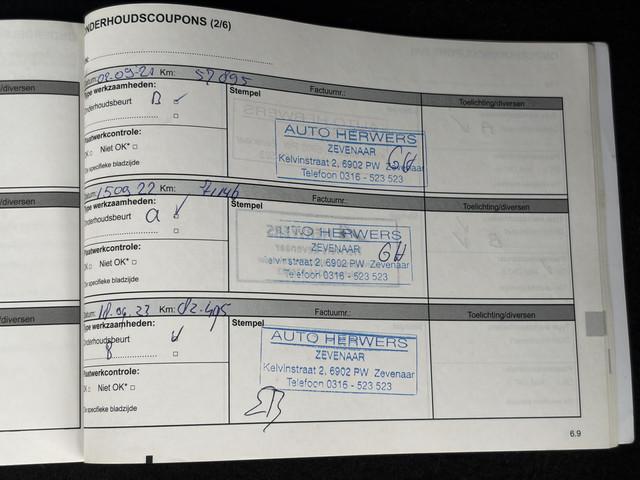 NDERHOUDSCOUPONS (2/6)
Datum: 02-09-21 Km: 57895
Type werkzaamheden:
Onderhoudsbeurt B
Plaatwerkcontrole:
OK □ Niet OK* □
Zie specifieke bladzijde
Stempel Factuurnr.:
AUTO HERWERS
ZEVENAAR
Kelvinstraat 2, 6902 PW Zevenaar
Telefoon 0316 - 523 523
GH
Toelichting/diversen
n/diversen
Datum: 1509 22 Km:
Type werkzaamheden:
Onderhoudsbeurt a
Plaatwerkcontrole:
OK □ Niet OK* □
Zie specifieke bladzijde
Stempel Factuurnr.:
AUTO HERWERS
ZEVENAAR
Kelvinstraat 2, 6902 PW Zevenaar
Telefoon 0316 - 523 523
GH
Toelichting/diversen
/diversen
Datum: Km:
Type werkzaamheden:
Onderhoudsbeurt
B
Plaatwerkcontrole:
OK □ Niet OK* □
Zie specifieke bladzijde
Stempel Factuurnr.:
AUTO HERWERS
ZEVENAAR
Kelvinstraat 2, 6902 PW Zevenaar
Telefoon 0316 - 523 523
Toelichting/diversen
/diversen
6.9